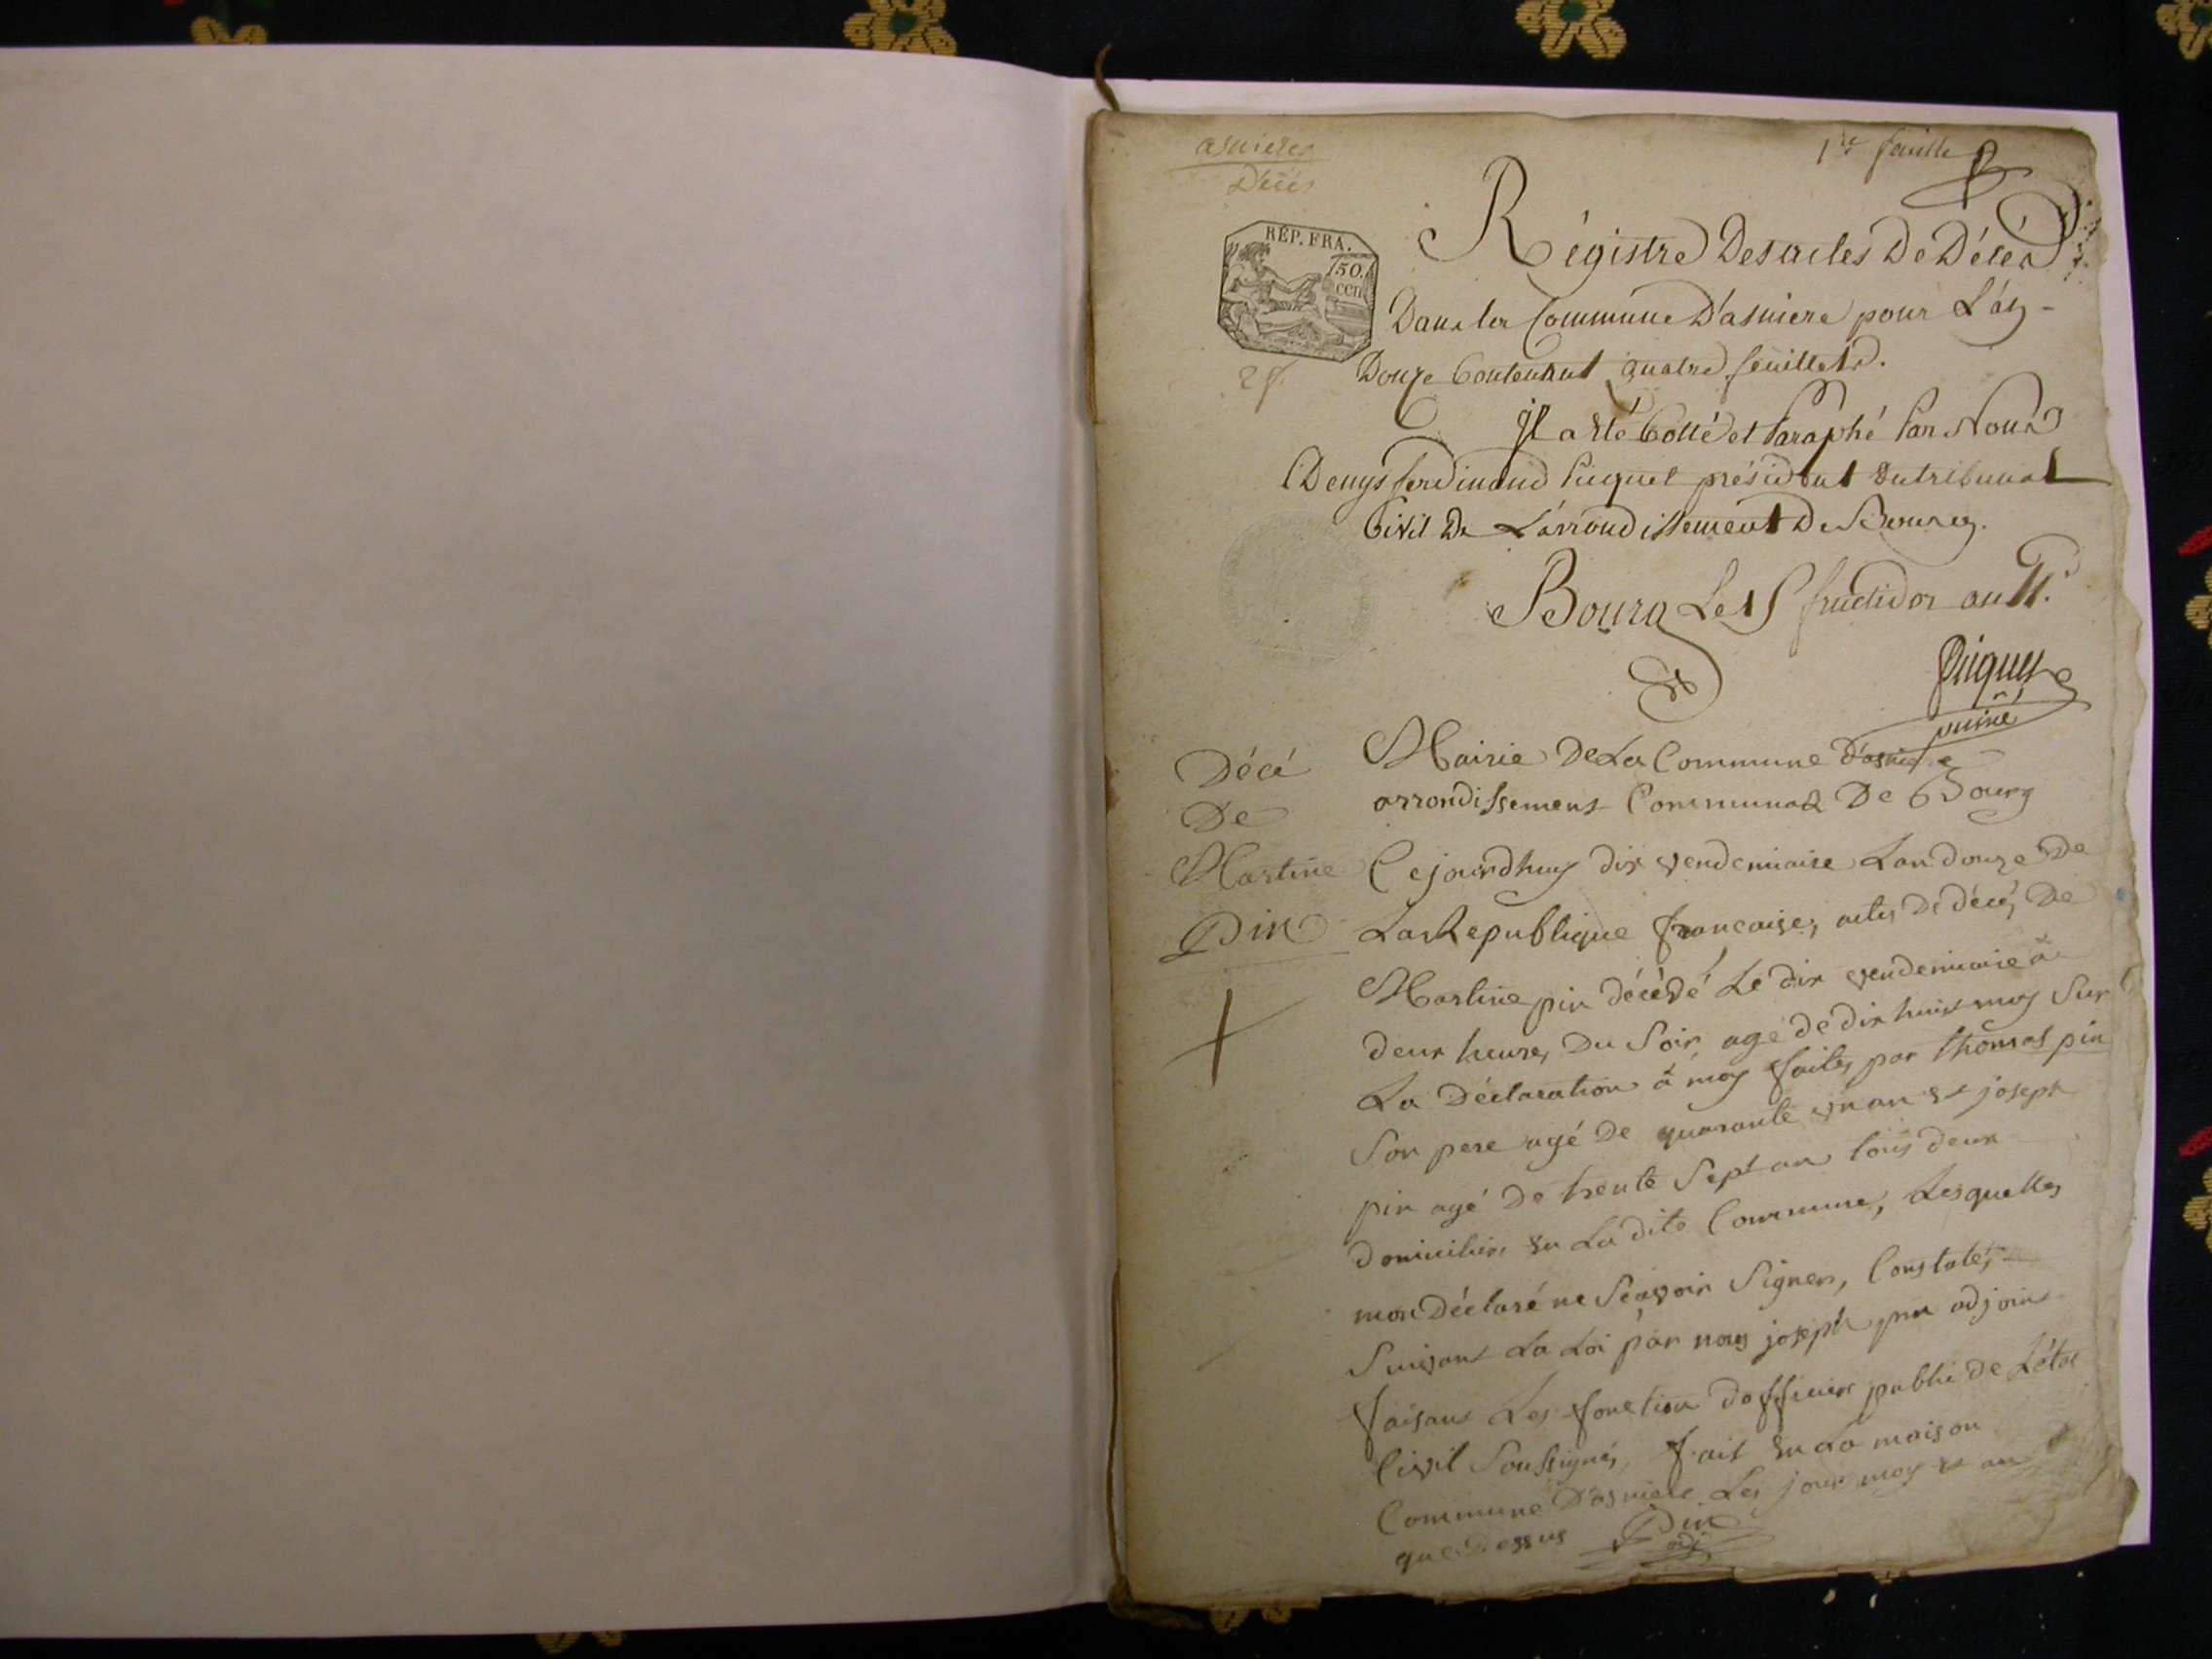 asnieres
Décés
1re feuille
REP. FRA.
50.
cen
Régistre Des actes De Décés
Dans la Commune D'asniere pour L'an
Douze Contenant quatre feuillets.
Il a Eté Cotté et Paraphé Par Nous
Denys ferdinand Piquet président Du tribunal
Civil De L'arrondissement De Bourg.
Bourg Le 15 fructidor an 11.
Piquet
puiné
Décé
De
Martine
Pin
Mairie De La Commune D'asniere
arrondissement Communal De Bourg
Cejourdhuy dix vendemiaire Lan douze De
La Republique francaise, actes De décé, De
Martine pin décédé Le dix vendemiaire à
deux heures Du Soir agé de dix huit moy Sur
La Déclaration à moy faites par thomas pin
Son pere agé De quarante un an et joseph
pin agé De trente Sept an tous deux
domiciliés En La dite Commune, Lesquelles
mon Déclaré ne Scavoir Signer, Constatés
Suivant La Loi par nous joseph pin adjoint
faisant Les fonction dofficier public de L'étal
Civil Soussignés, fait En La maison
Commune D'asniere Les jour moy et an
que Dessus Pin
adj